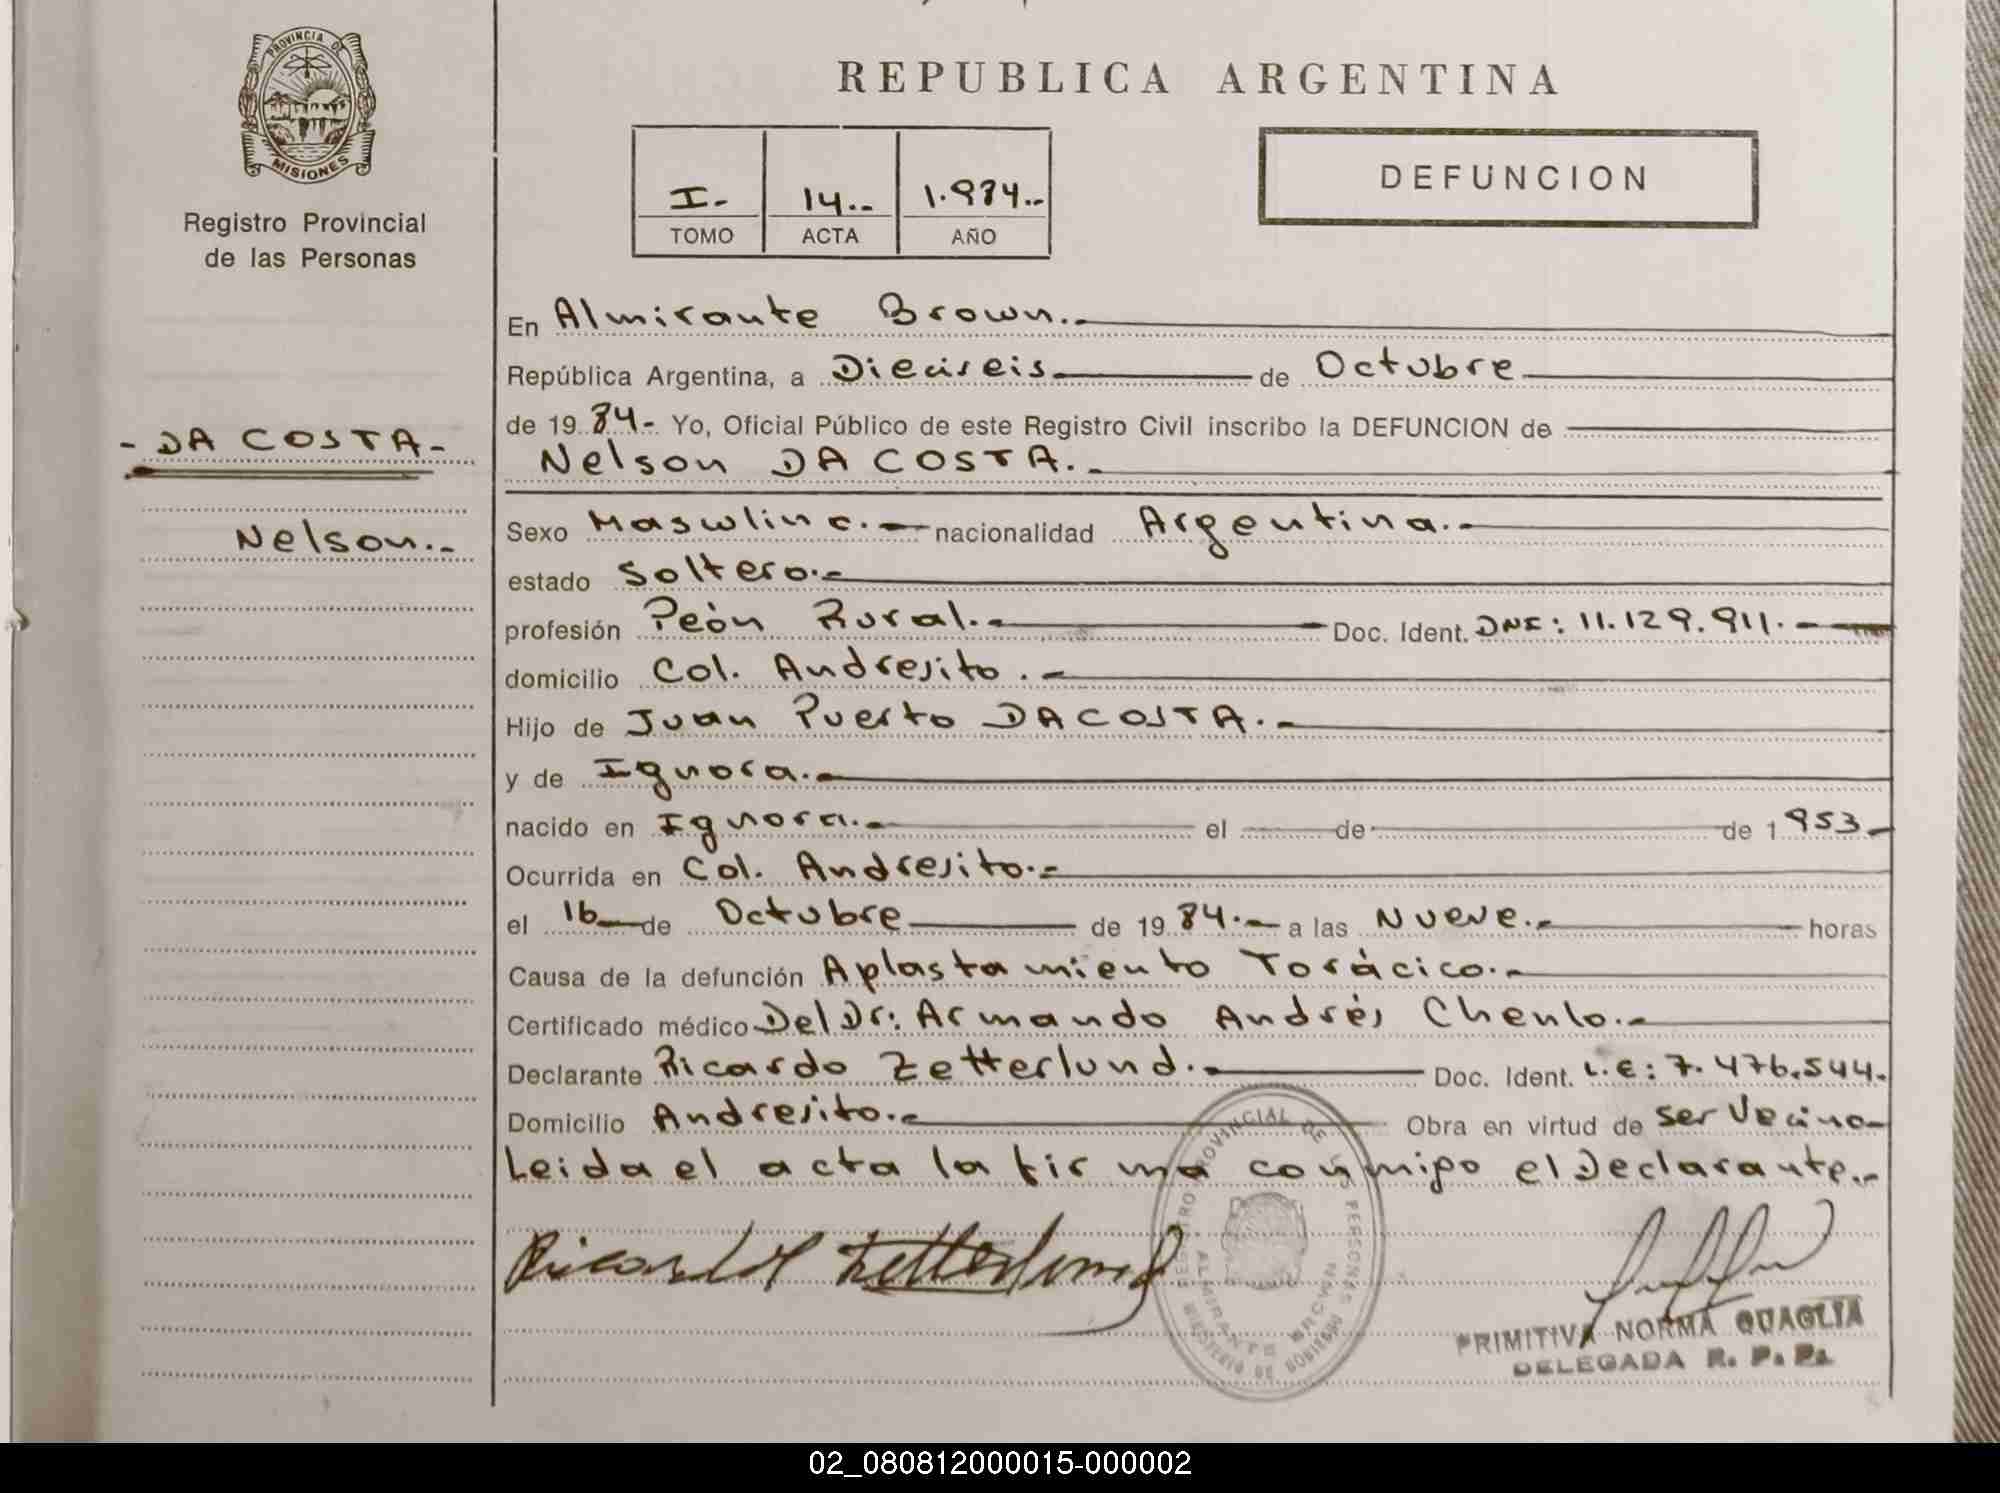 PROVINCIA DE
MISIONES
Registro Provincial
de las Personas
- DA COSTA -
Nelson.-
REPUBLICA ARGENTINA
I.- 14.- 1.984.-
TOMO ACTA AÑO
DEFUNCION
En Almirante Brown.-
República Argentina, a Dieciseis de Octubre
de 19 84.- Yo, Oficial Público de este Registro Civil inscribo la DEFUNCION de
Nelson DA COSTA.-
Sexo Masculino.- nacionalidad Argentina.-
estado Soltero.-
profesión Peón Rural.- Doc. Ident. DNI: 11.129.911.-
domicilio Col. Andresito.-
Hijo de Juan Puerto DA COSTA.-
y de Ignora.-
nacido en Ignora.- el de de 1 953-
Ocurrida en Col. Andresito.-
el 16 de Octubre de 19 84.- a las Nueve.- horas
Causa de la defunción Aplastamiento Torácico.-
Certificado médico Del Dr: Armando Andrés Chenlo.-
Declarante Ricardo Zetterlund.- Doc. Ident. L.E: 7.476.544.
Domicilio Andresito.- Obra en virtud de ser Vecino-
Leida el acta la firma conmigo el Declarante.-
Ricardo Zetterlund
REGISTRO PROVINCIAL DE LAS PERSONAS
ALMIRANTE BROWN
MINISTERIO DE GOBIERNO
PRIMITIVA NORMA QUAGLIA
DELEGADA R. P. P.
02_080812000015-000002